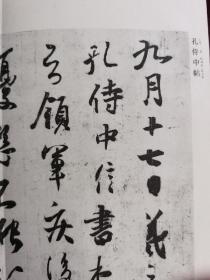 孔侍中帖
九月十七日羲之
孔侍中信書
領軍疾後
憂懸不